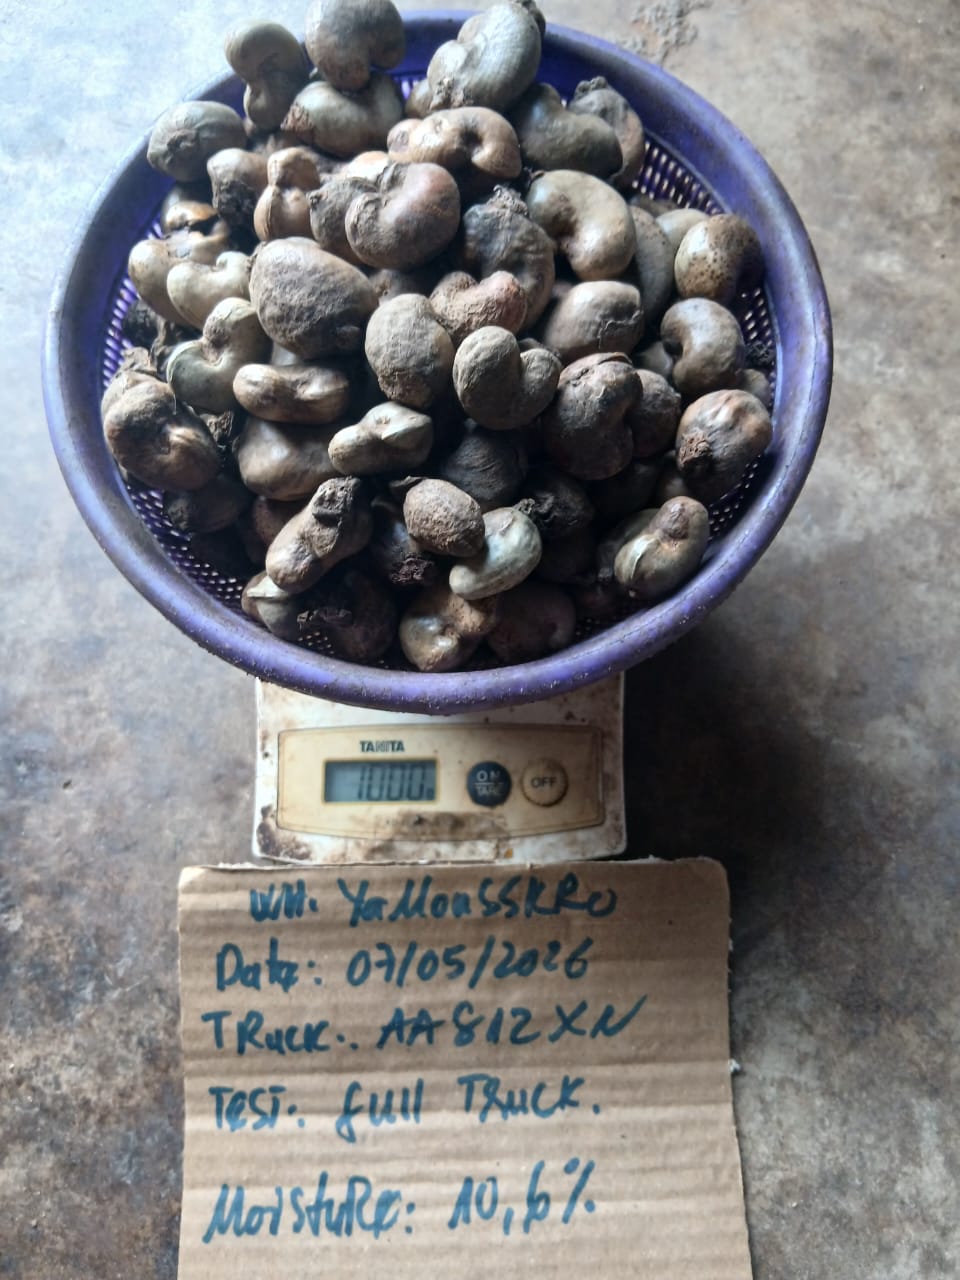 TANITA
1000g
ON
TARE
OFF
WH. YaMoussKRo
Date: 07/05/2026
TRuck.. AA 812 XN
TesT. full TRuck.
MoistuRe: 10,6%